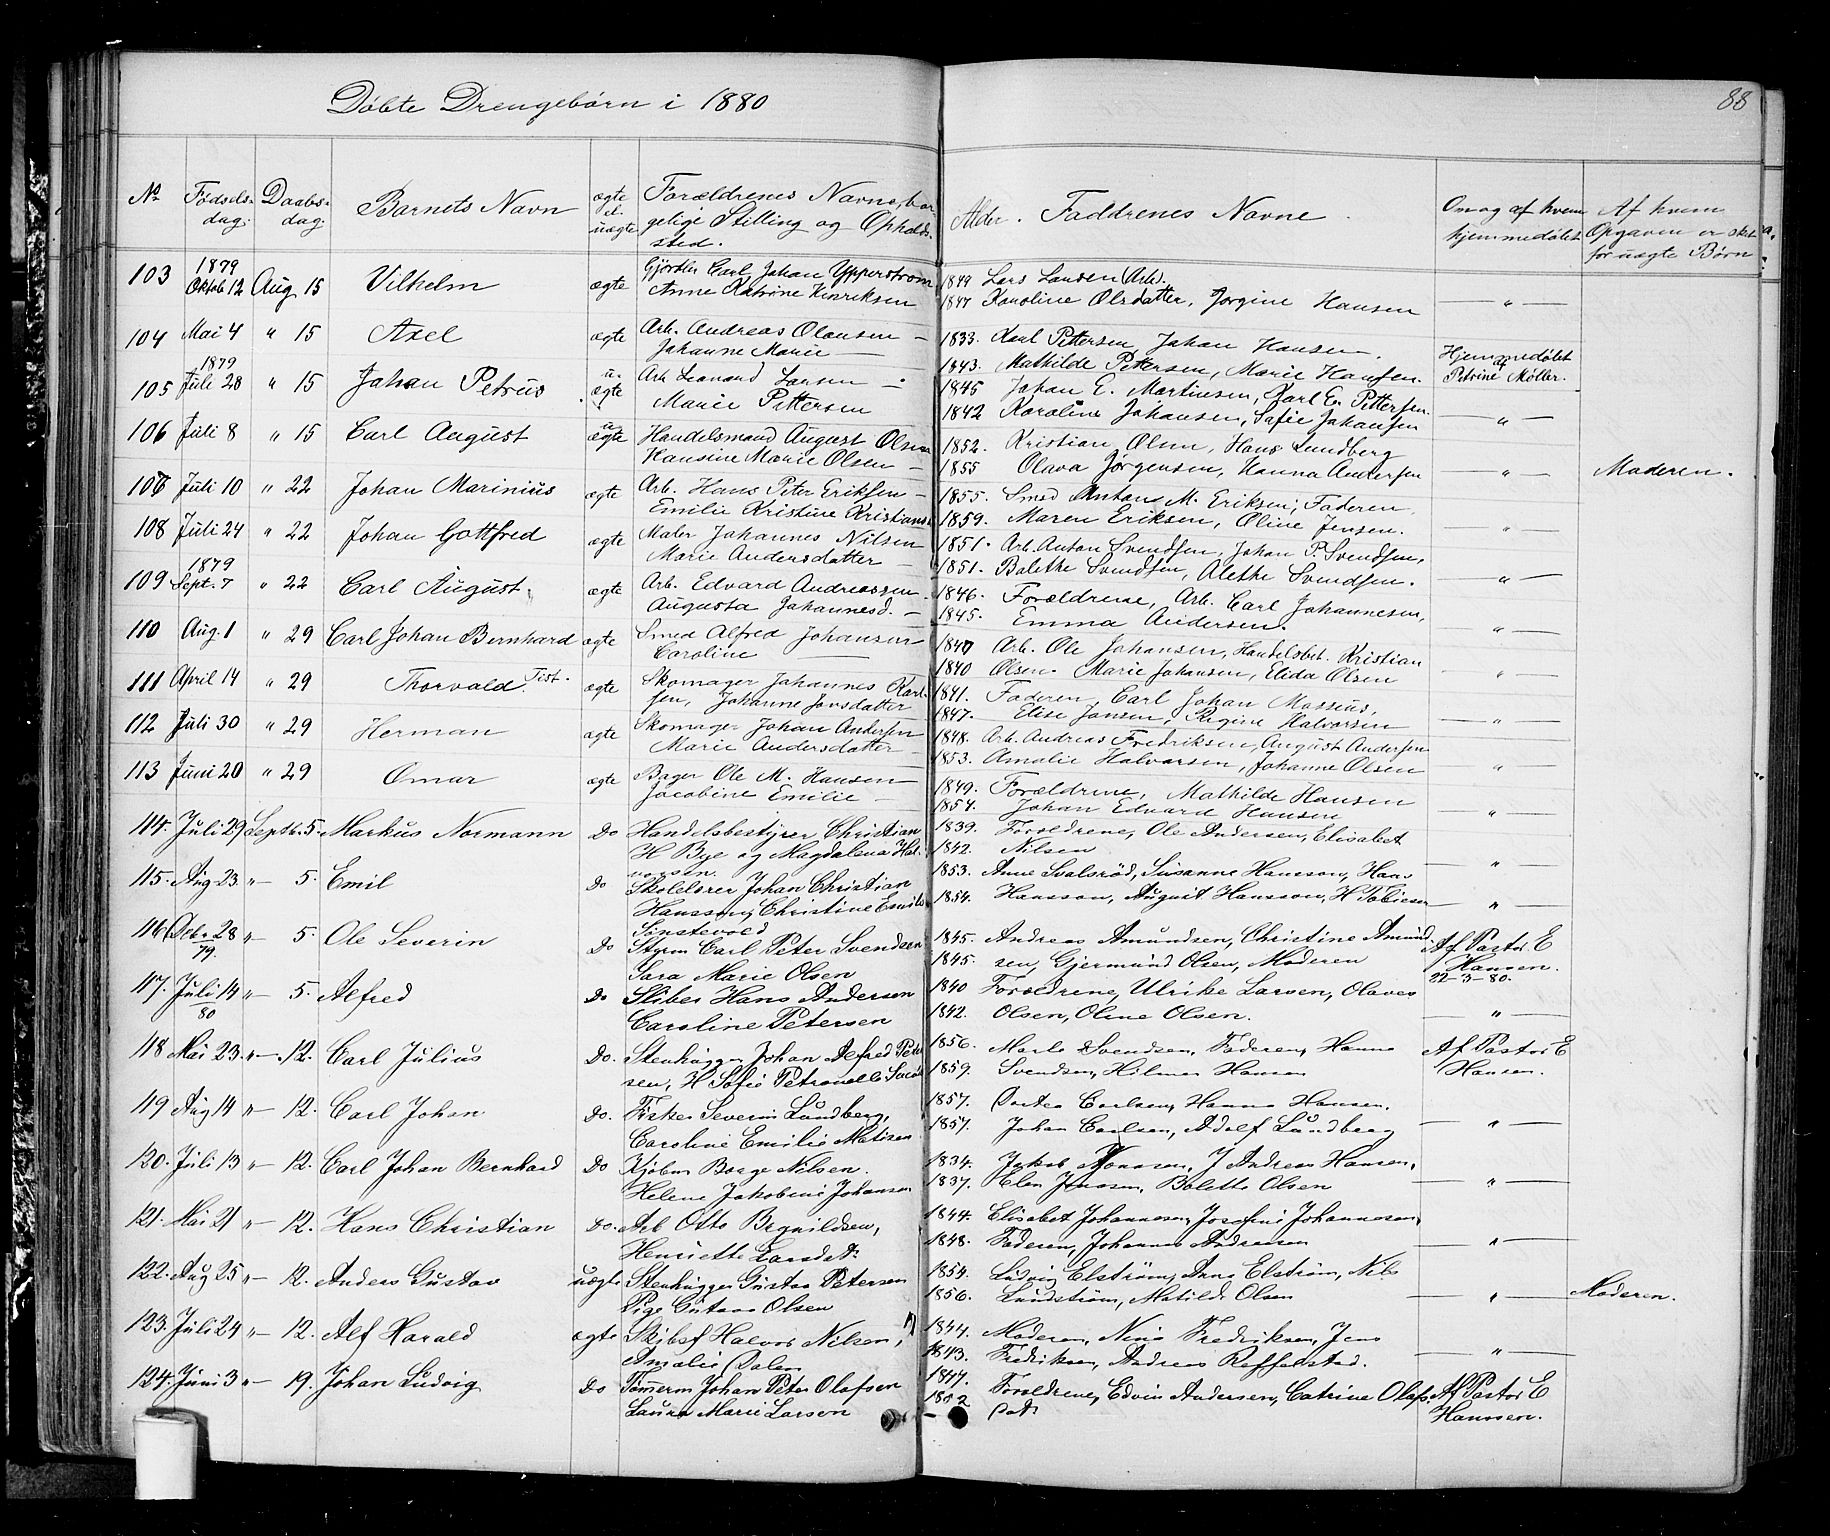 Døbte Drengebørn i 1880
88
No Fødselsdag. Daabsdag. Barnets Navn ægte el. uægte Forældrenes Navne, borgelige Stilling og Opholdssted. Alder. Faddrenes Navne Om og af hvem hjemmedøbt Af hvem Opgaven er sket for uægte Børn
103 1879 Oktob 12 Aug 15 Vilhelm ægte Gjørtler Carl Johan Ypperstrom 1849 Lars Larsen (Arb.)
Anne Katrine Henriksen 1847 Karoline Olsdatter, Jørgine Hansen — " —
104 Mai 4 " 15 Axel ægte Arb. Andreas Olausen — 1833. Karl Pettersen, Johan Hansen.
Johanne Marie — 1843. Mathilde Pettersen, Marie Hansen. Hjemmedøbt af Petrine Møller.
105 1879 Juli 28 " 15 Johan Petrus u. ægte Arb. Leonard Larsen — 1845 Johan E. Martinsen, Karl E. Pettersen
Marie Pettersen 1842 Karoline Johansen, Sofie Johansen — " —
106 Juli 8 " 15 Carl August u ægte Handelsmand August Olsen 1852. Kristian Olsen, Hans Lundberg
Hansine Marie Olsen — 1855 Olava Jørgensen, Hanna Andersen — " — Moderen.
106 Juli 10 " 22 Johan Marinius ægte Arb. Hans Peter Eriksen — 1855. Smed Anton M. Eriksen, Faderen,
Emilie Kristine Kristians 1859. Maren Eriksen, Oline Jensen. — " —
108 Juli 24 " 22 Johan Gottfred ægte Maler Johannes Nilsen 1851. Arb. Anton Svendsen, Johan P. Svendsen,
Marie Andersdatter — 1851. Balethe Svendsen, Alethe Svendsen. — " —
109 1879 Sept. 7 " 22 Carl August ægte Arb. Edvard Andreassen 1846. Forældrene, Arb. Carl Johannesen,
Augusta Johannesd. — 1845. Emma Andersen. — " —
110 Aug. 1 " 29 Carl Johan Bernhard ægte Smed Alfred Johansen 1847 Arb. Ole Johansen, Handelsbet. Kristian
Caroline — 1840 Olsen. Marie Johansen, Elida Olsen — " —
111 April 14 " 29 Thorvald Tist. ægte Skomager Johannes Karl- 1841. Faderen, Carl Johan Massius,
sen, Johanne Jonsdatter 1847. Elise Jansen, Regine Halvorsen — " —
112 Juli 30 " 29 Herman ægte Skomager Johan Andersen 1848. Arb. Andreas Fredriksen, August Andersen
Marie Andersdatter — 1853. Amalie Halvorsen, Johanne Olsen — " —
113 Juni 20 " 29 Omar ægte Bager Ole M. Hansen 1849. Forældrene, Mathilde Hansen
Jacobine Emilie — 1854. Johan Edvard Hansen — " —
114. Juli 29 Septb. 5. Markus Normann Do Handelsbestyrer Christian 1839. Forældrene, Ole Andersen, Elisabet
H Bye og Magdalena Hal- 1842. Nilsen — " —
vorsen.
115. Aug 23. " — 5. Emil Do Skolelærer Johan Christian 1853. Anne Svalsrød, Susanne Hansson, Hans
Hansson, Christine Emilie 1854. Hansson, August Hansson, H Tobiesen — " —
Sønstevold
116. Octbr 28 79. " — 5. Ole Severin Do Styrm Carl Peter Svendsen 1845. Andreas Amundsen, Christine Amund- Af Pastor E
Sara Marie Olsen 1845. sen, Gjermund Olsen, Moderen Hansen. 22-3-80.
117. Juli 14 80 " — 5. Alfred Do Sliber Hans Andersen 1840 Forældrene, Ulrike Larsen, Olaves
Caroline Petersen 1842. Olsen, Oline Olsen. — " —
118 Mai 23. " — 12. Carl Julius Do. Stenhugger Johan Alfred Peter- 1856. Svendsen, Faderen, Hanna Af Pastor E
sen, H Sofie Petronelle 1859. Svendsen, Hilmer Hansen Hansen.
119 Aug 14 " — 12. Carl Johan Do. Fisker Severin Lundberg, 1857. Carlsen, Hanna Hansen.
Caroline Emilie Matisen 1857. Johan Carlsen, Adolf Lundberg — " —
120. Juli 13 " — 12. Carl Johan Bernhard Do Kjøbm Borge Nilsen. 1834. Jakob Jonasen, J Andreas Hansen,
Helene Jakobine Johansen 1837. Elen Jonasen, Bolette Olsen — " —
121. Mai 21 " — 12. Hans Christian Do. Arb Otto Begnildsen, 1844. Elisabet Johannesen, Josefine Johannesen,
Henriette Larsdtr 1848. Faderen, Johannes Andreasen — " —
122. Aug 25 " — 12. Anders Gustav uægte Stenhugger Gustav Petersen 1854. Ludvig Elstrøm, Anna Elstrøm, Nils
Pige Gustava Olsen 1856. Lundstrøm, Matilde Olsen — " — Moderen.
123. Juli 24 " — 12. Alf Harald ægte Skibsf Halvor Nilsen, 1844. Moderen, Nina Fredriksen, Jens
Amalie Dalen 1843. Fredriksen, Andreas — " —
124. Juni 3 " — 19. Johan Ludvig Do Tømerm Johan Peter Olafsen 1847. Forældrene, Edvin Andersen, Catrine Olafs- Af Pastor E
Laura Marie Larsen 1802 Datr Hanssen.